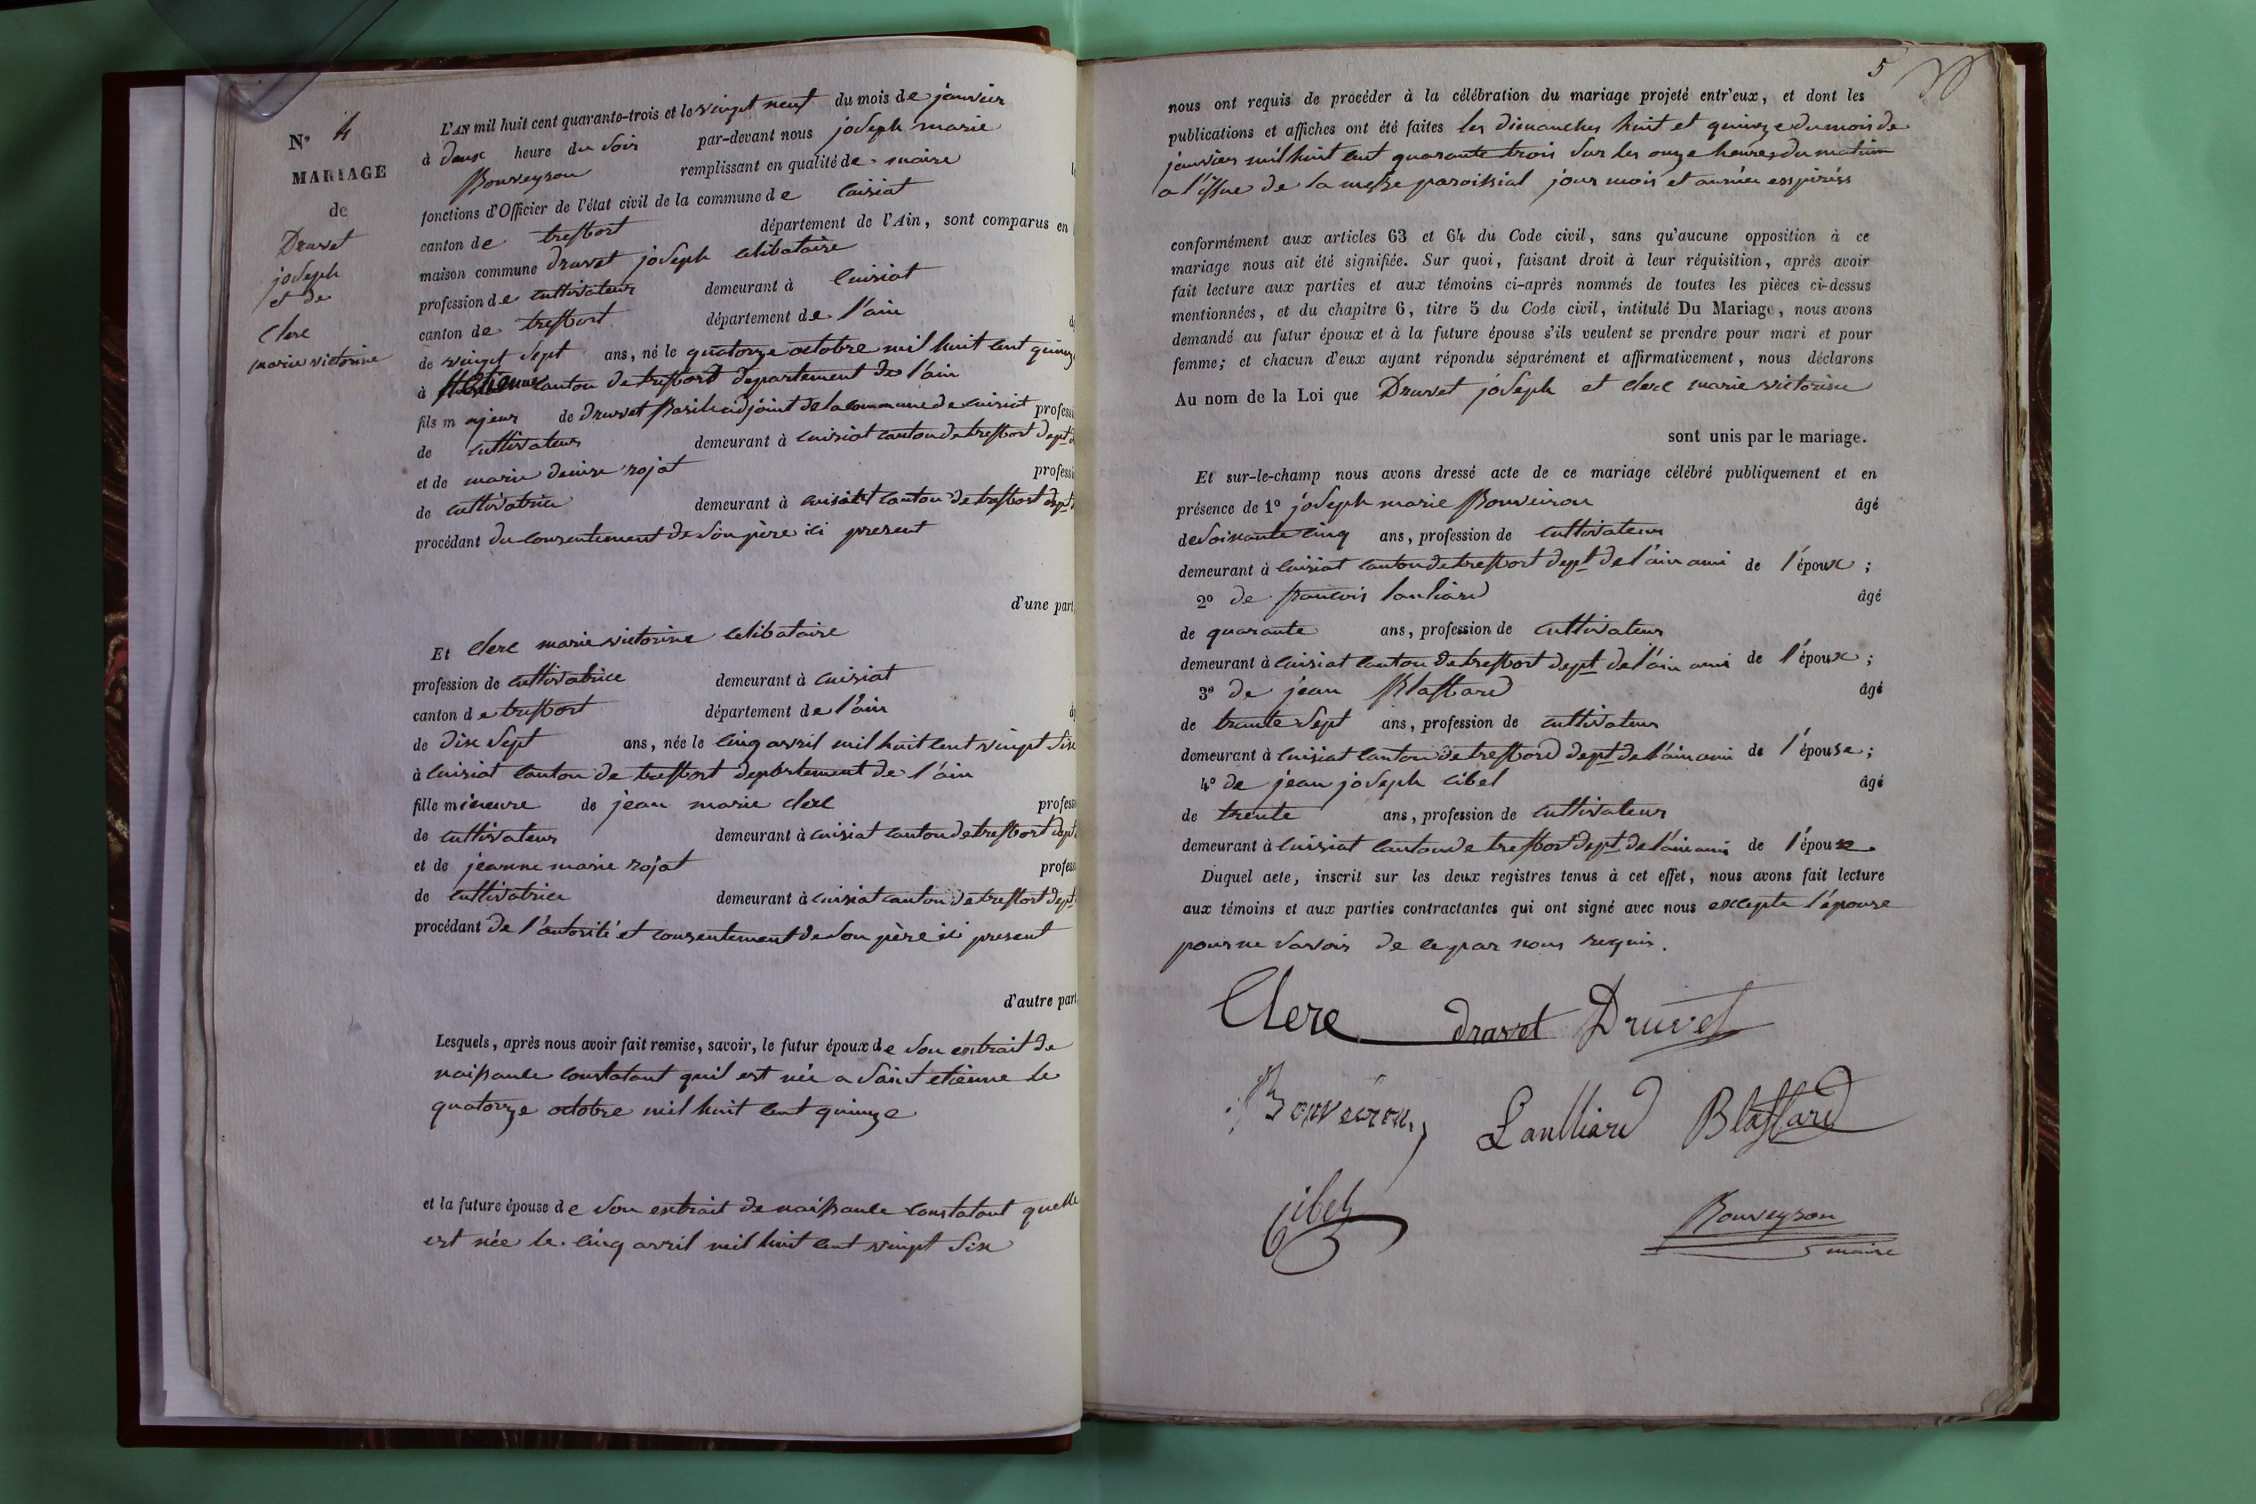 N° 4
MARIAGE
de
Druvet
joseph
et de
Clerc
marie victorine
L'AN mil huit cent quarante-trois et le vingt neuf du mois de janvier
à deux heure du soir par-devant nous joseph marie
Bouveyron remplissant en qualité de maire
fonctions d'Officier de l'état civil de la commune de Cuisiat
canton de treffort département de l'Ain, sont comparus en
maison commune Druvet joseph celibataire
profession de cultivateur demeurant à Cuisiat
canton de treffort département de l'ain
de vingt sept ans, né le quatorze octobre mil huit cent quinze
à canton de treffort departement de l'ain
fils majeur de druvet Basile adjoint de la commune de cuisiat profess
de cultivateur demeurant à cuisiat canton de treffort dept
et de marie denise rojat professi
de cultivatrice demeurant à cuisiat canton de treffort dept
procédant du consentement de son père ici present
d'une part,
Et clerc marie victorine celibataire
profession de cultivatrice demeurant à cuisiat
canton de treffort département de l'ain
de dix sept ans, née le cinq avril mil huit cent vingt six
à cuisiat canton de treffort departement de l'ain
fille mineure de jean marie clerc profess
de cultivateur demeurant à cuisiat canton de treffort dept
et de jeanne marie rojat profess
de cultivatrice demeurant à cuisiat canton de treffort dept
procédant de l'autorité et consentement de son père ici present
d'autre part
Lesquels, après nous avoir fait remise, savoir, le futur époux de son extrait de
naissance constatant quil est née a saint etienne le
quatorze octobre mil huit cent quinze
et la future épouse de son extrait de naissance constatant quelle
est née le cinq avril mil huit cent vingt six
5
nous ont requis de procéder à la célébration du mariage projeté entr'eux, et dont les
publications et affiches ont été faites les dimanches huit et quinze du mois de
janvier mil huit cent quarante trois sur les onze heures du matin
a l'issue de la messe paroissial jour mois et année expirés
conformément aux articles 63 et 64 du Code civil, sans qu'aucune opposition à ce
mariage nous ait été signifiée. Sur quoi, faisant droit à leur réquisition, après avoir
fait lecture aux parties et aux témoins ci-après nommés de toutes les pièces ci-dessus
mentionnées, et du chapitre 6, titre 5 du Code civil, intitulé Du Mariage, nous avons
demandé au futur époux et à la future épouse s'ils veulent se prendre pour mari et pour
femme; et chacun d'eux ayant répondu séparément et affirmativement, nous déclarons
Au nom de la Loi que Druvet joseph et clerc marie victorine
sont unis par le mariage.
Et sur-le-champ nous avons dressé acte de ce mariage célébré publiquement et en
présence de 1° joseph marie Bouveiron âgé
de soixante cinq ans, profession de cultivateur
demeurant à cuisiat canton de treffort dept de l'ain ami de l'époux;
2° de francois laulliard âgé
de quarante ans, profession de cultivateur
demeurant à cuisiat canton de treffort dept de l'ain ami de l'époux;
3° de jean Blassard âgé
de trente sept ans, profession de cultivateur
demeurant à cuisiat canton de trefford dept de l'ain ami de l'épouse;
4° de jean joseph cibel âgé
de trente ans, profession de cultivateur
demeurant à cuisiat canton de treffort dept de l'ain ami de l'épouse
Duquel acte, inscrit sur les deux registres tenus à cet effet, nous avons fait lecture
aux témoins et aux parties contractantes qui ont signé avec nous excepte l'épouse
pour ne savoir de ce par nous requis.
Clerc druvet Druvet
Bouveiron Laulliard Blassard
Cibel Bouveyron
maire